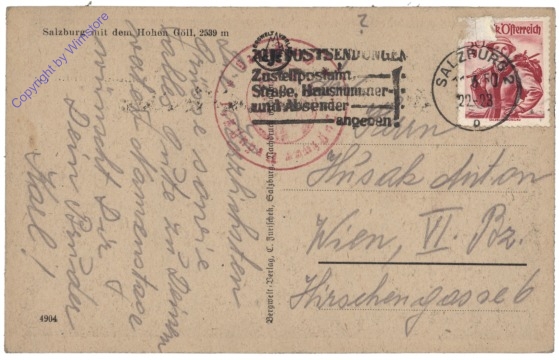 Salzburg mit dem Hohen Göll, 2539 m
Copyright by Winistore
Herzlichsten
Grüsse sowie
alles Gute zu Deinem
Namenstag
wünscht Dir
Dein Bruder
Karl!
4904
Bergwelt-Verlag, C. Jurischek, Salzburg. Nachdruck
?
POSTSENDUNGEN
Zustellpostamt,
Straße, Hausnummer
und Absender
angeben!
SALZBURG 2
Österreich
Herrn
Husak Anton
Wien, VI. Bz.
Hirschengasse 6